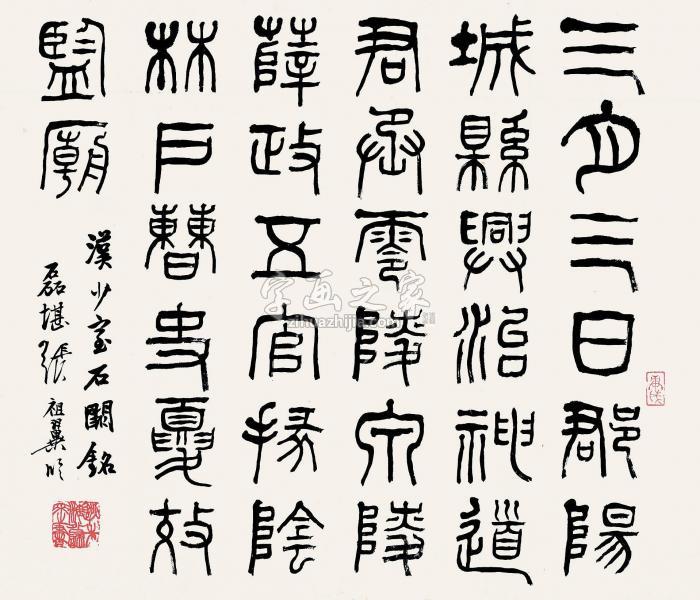 三月三日郡陽
城縣興治神道
君丞零陵泉陵
薛政五官掾陰
林戶曹史夏效
監廟
漢少室石闕銘
磊堪張祖翼
字画之家
zihuazhijia.com